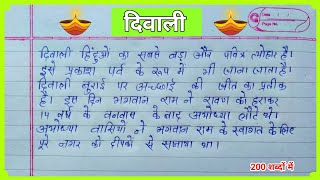 दिवाली
Date :
Page No.
दिवाली हिंदुओं का सबसे बड़ा और पवित्र त्योहार है।
इसे प्रकाश पर्व के रूप में भी जाना जाता है।
दिवाली बुराई पर अच्छाई की जीत का प्रतीक
है। इस दिन भगवान राम ने रावण को हराकर
14 वर्ष के वनवास के बाद अयोध्या लौटे थे।
अयोध्या वासियो ने भगवान राम के स्वागत के लिए
पूरे नगर को दीपकों से सजाया था।
200 शब्दों में